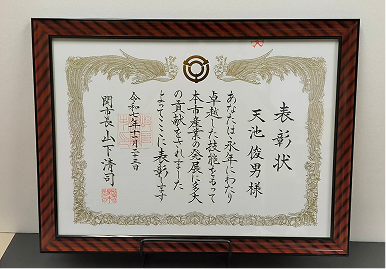 表彰状
天池俊男様
あなたは永年にわたり
卓越した技能をもって
本市産業の発展に多大
の貢献をされました
よってここに表彰します
令和七年十一月二十三日
関市長山下清司